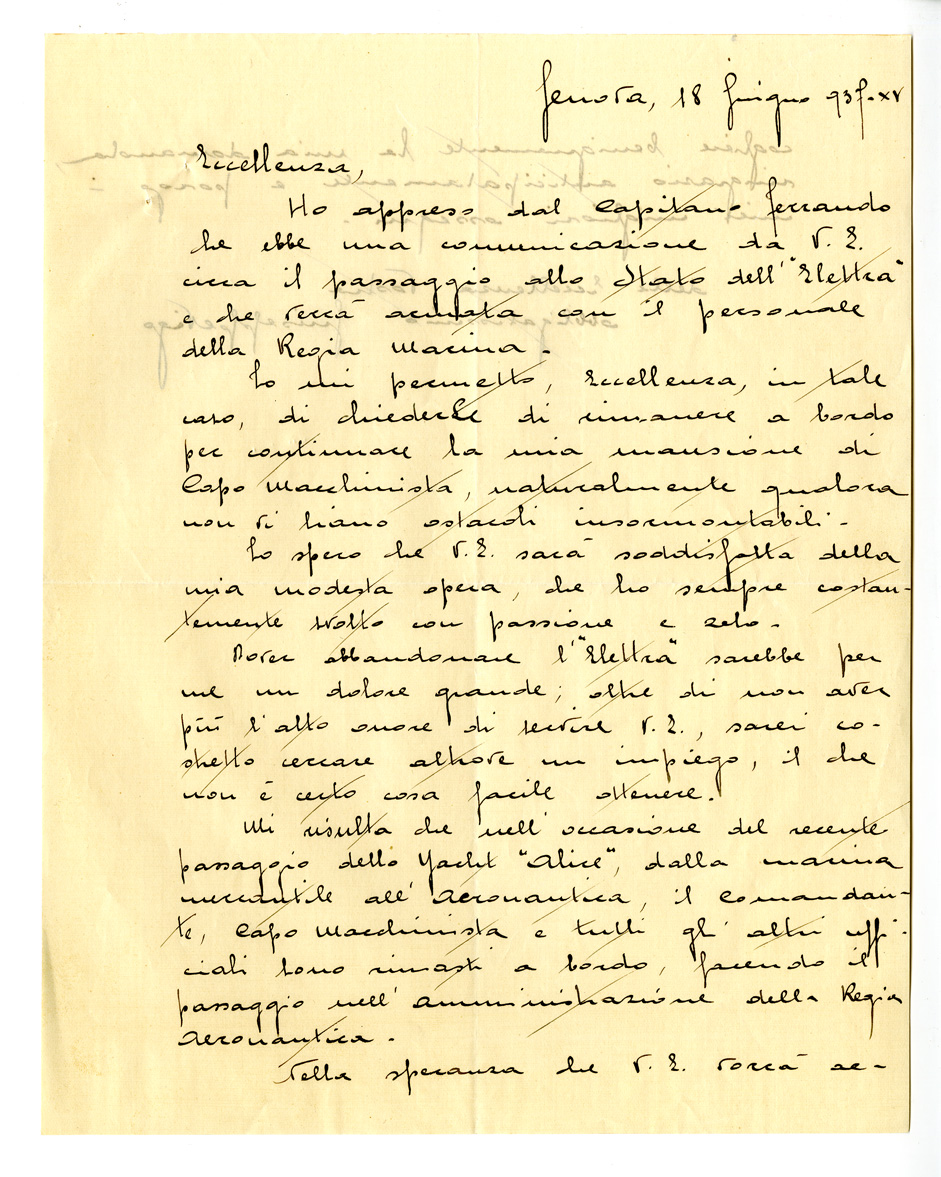 Genova, 18 Giugno 937-XV
Eccellenza,
Ho appreso dal Capitano Ferrando
che ebbe una comunicazione da V. E.
circa il passaggio allo Stato dell'"Elettra"
e che verrà armata con il personale
della Regia Marina.
Io mi permetto, Eccellenza, in tale
caso, di chiederLe di rimanere a bordo
per continuare la mia mansione di
Capo Macchinista, naturalmente qualora
non vi siano ostacoli insormontabili.
Io spero che V. E. sarà soddisfatta della
mia modesta opera, che ho sempre costan-
temente svolto con passione e zelo.
Dover abbandonare l'"Elettra" sarebbe per
me un dolore grande; oltre di non aver
più l'alto onore di servire V. E., sarei co-
stretto cercare altrove un impiego, il che
non è certo cosa facile ottenere.
Mi risulta che nell'occasione del recente
passaggio dello Yacht "Alice", dalla marina
mercantile all'Aeronautica, il Comandan-
te, Capo Macchinista e tutti gl'altri uffi-
ciali sono rimasti a bordo, facendo il
passaggio nell'amministrazione della Regia
Aeronautica.
Nella speranza che V. E. vorrà ac-